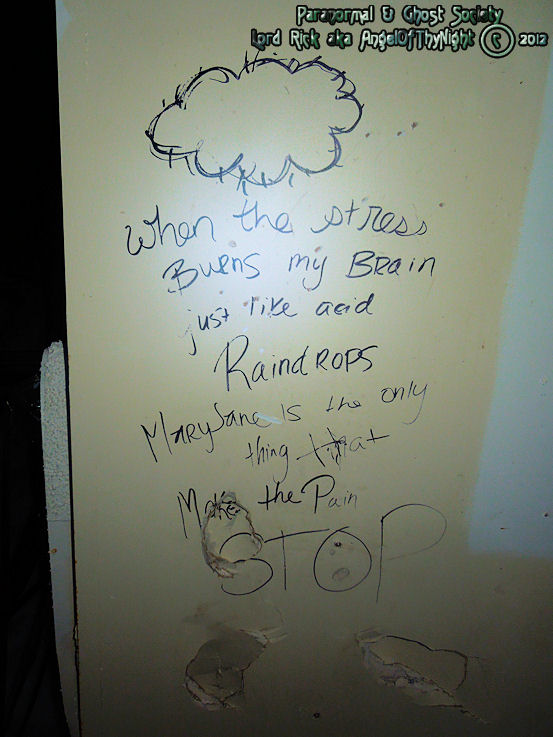 Paranormal & Ghost Society
Lord Rick aka AngelOfThyNight © 2012
When the stress
Burns my Brain
just like acid
RaindRops
MaryJane is the only
thing that
Make the Pain
STOP